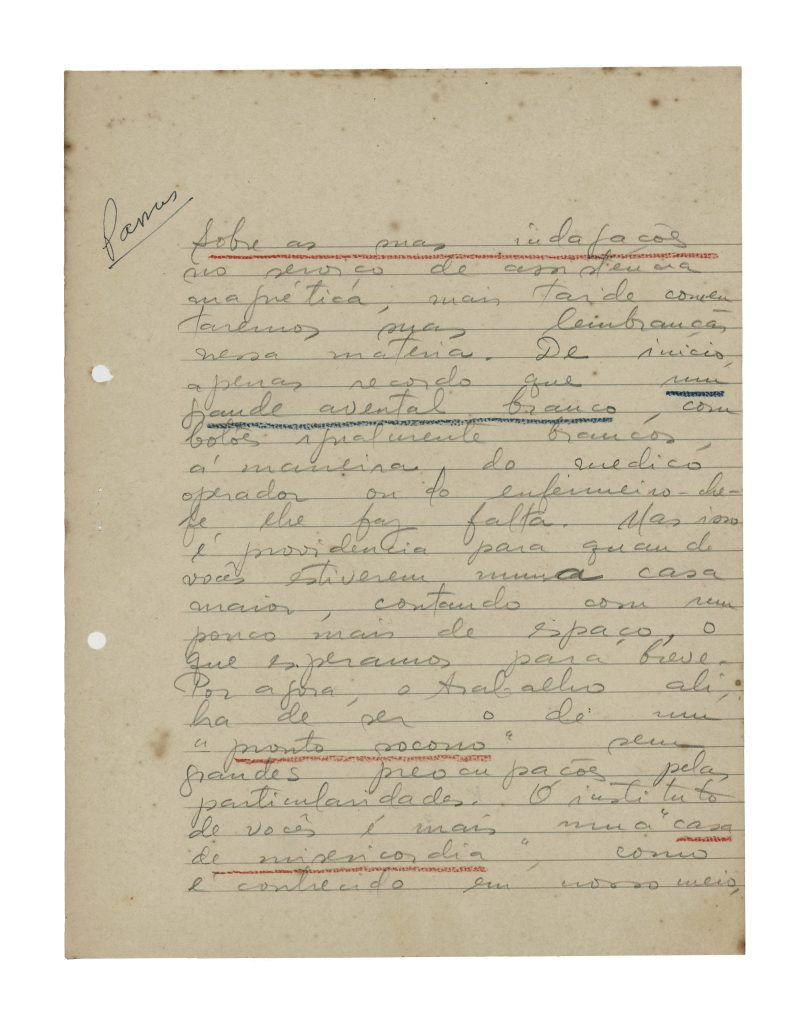 Passes
Sobre as suas indagações
no serviço de assistencia
magnética, mais tarde comen
taremos suas lembranças
nessa materia. De inicio,
apenas recordo que um
grande avental branco, com
botões igualmente brancos,
á maneira do medico
operador ou do enfermeiro-che-
fe lhe faz falta. Mas isso
é providencia para quando
vocês estiverem numa casa
maior, contando com um
pouco mais de espaço, o
que esperamos para breve.
Por agora, o trabalho ali,
ha de ser o de um
"pronto socorro" sem
grandes preocupações pelas
particularidades. O instituto
de vocês é mais uma "casa
de misericordia", como
é conhecido em nosso meio,